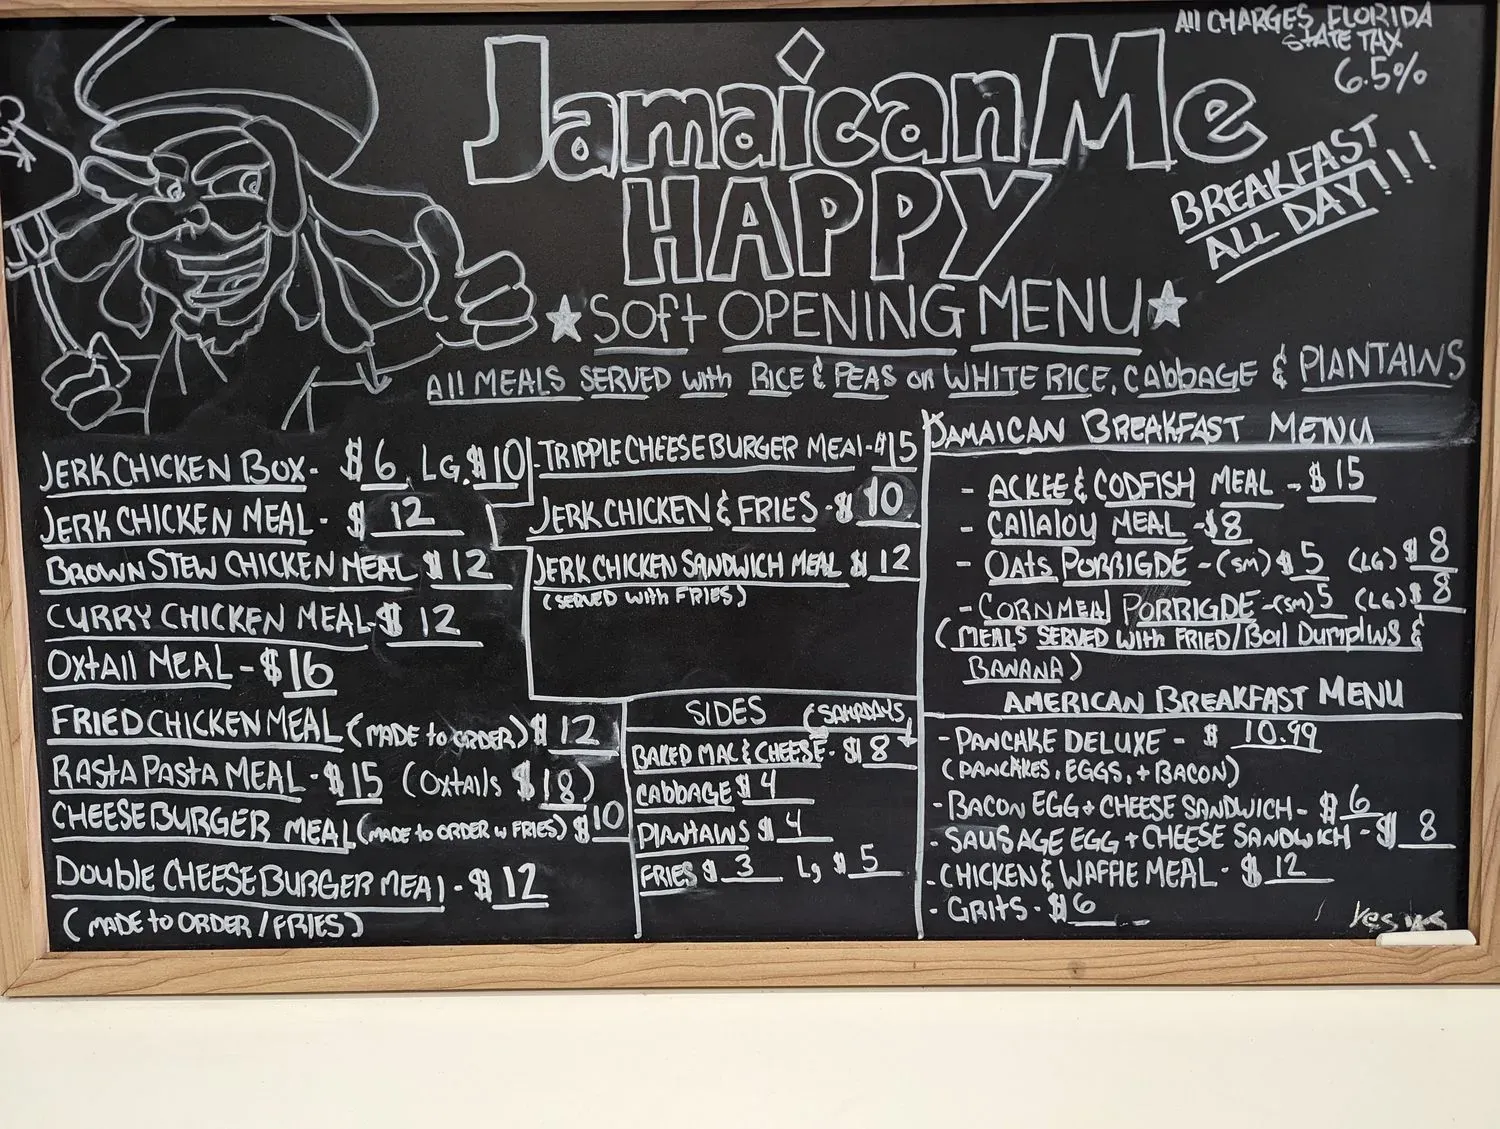 All CHARGES, FLORIDA
STATE TAX
6.5%
Jamaican Me
HAPPY
BREAKFAST
ALL DAY!!!
SOFT OPENING MENU
All MEALS SERVED with RICE & PEAS or WHITE RICE, CABBAGE & PlANTAINS
JERK CHICKEN BOX - $6 LG. $10
JERK CHICKEN MEAL - $ 12
BROWN STEW CHICKEN MEAL $12
CURRY CHICKEN MEAL - $ 12
OXTAIL MEAL - $16
FRIED CHICKEN MEAL (MADE to ORDER) $ 12
RASTA PASTA MEAL - $15 (OXTAILS $18)
CHEESE BURGER MEAL (MADE to ORDER W FRIES) $10
DOUBLE CHEESE BURGER MEAL - $12
(MADE to ORDER / FRIES)
- TRIPPLE CHEESE BURGER MEAL - $15
JERK CHICKEN & FRIES - $ 10
JERK CHICKEN SANDWICH MEAL $12
(SERVED with FRIES)
SIDES (SAturDAYS)
BAKED MAC & CHEESE - $8
CABBAGE $4
PlANTAINS $4
FRIES $3 Lg $5
JAMAICAN BREAKFAST MENU
- ACKEE & CODFISH MEAL - $15
- CAllAlOU MEAL - $8
- OATS PORRIGDE - (SM) $5 (LG) $8
- CORNMEAL PORRIGDE - (SM) 5 (LG) $8
(MEALS SERVED with FRIED/Boil DUMPLINS &
BANANA)
AMERICAN BREAKFAST MENU
- PANCAKE DELUXE - $ 10.99
(PANCAKES, EGGS, + BACON)
- BACON EGG + CHEESE SANDWICH - $6
- SAUSAGE EGG + CHEESE SANDWICH - $8
- CHICKEN & WAFFlE MEAL - $12
- GRITS - $6